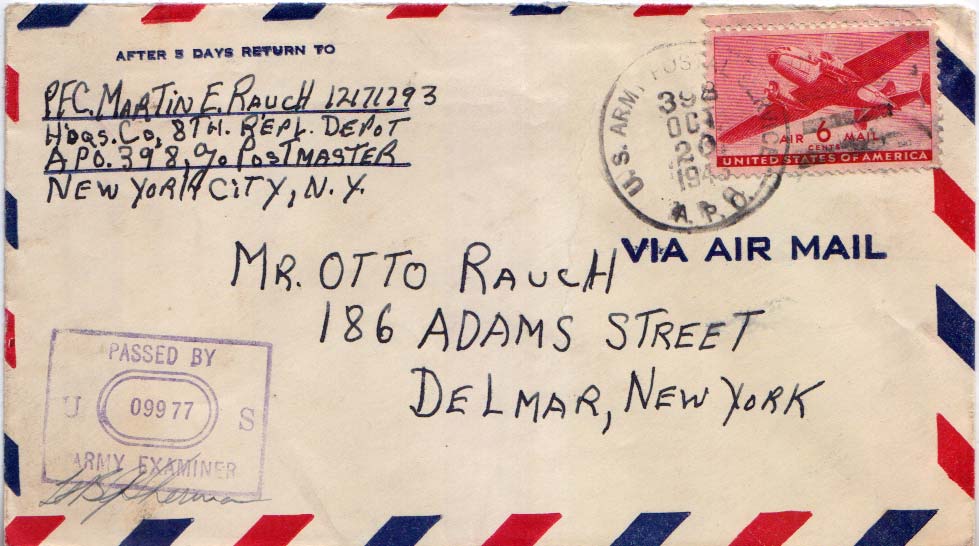 AFTER 5 DAYS RETURN TO
PFC. MARTIN E. RAUCH 12171293
HDQS. CO, 8TH. REPL. DEPOT
A.P.O. 398, % POSTMASTER
NEW YORK CITY, N.Y.
U.S. ARMY POSTAL SERVICE
398
OCT
20
A.P.O.
AIR 6 MAIL
CENTS
UNITED STATES OF AMERICA
VIA AIR MAIL
MR. OTTO RAUCH
186 ADAMS STREET
DELMAR, NEW YORK
PASSED BY
U 09977 S
ARMY EXAMINER